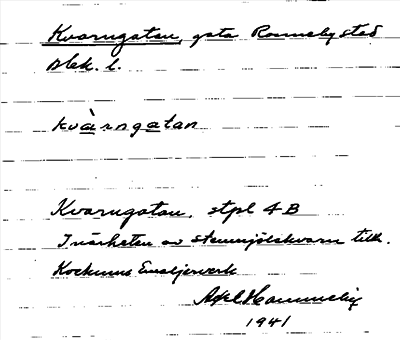 Kvarngatan, gata Ronneby stad
Blek. l.
kvàrngatan
Kvarngatan. stpl 4B
I närheten av stenmjölskvarn tillh.
Kockums Emaljerverk
Axel Hammelin
1941